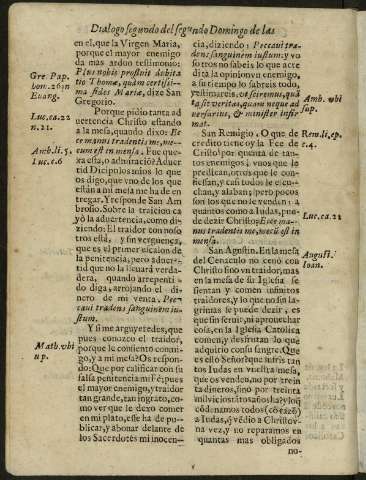 Dialogo segundo del segundo Domingo de las
en el, que la Virgen Maria,
porque el mayor enemigo
da mas arduo testimonio:
Plus nobis profuit dubita
tio Thomæ, quàm certissi-
ma fides Mariæ, dize San
Gregorio.
Porque pidio tanta ad
uertencia Christo estando
a la mesa, quando dixo: Ec
ce manus tradentis me, me-
cum est in mensa. Fue que-
xa esta, o admiracion? Aduer
tid Dicipulos mios lo que
os digo, que vno de los que
estan a mi mesa me ha de en
tregar. Y responde San Am
brosio. Sobre la traicion ca
yò la aduertencia, como di-
ziendo: El traidor con noso
tros està, y sin verguença,
que es el primer vicaion de
la penitencia, pero aduer-
tid que no la lleuarà verda-
dera, quando arrepenti-
do diga, arrojando el di-
nero de mi venta, Pec-
caui tradens sanguinem iu-
stum.
Y si me arguyeredes, que
pues conozco el traidor,
porque le consiento conmi-
go, y a mi mesa? Os respon-
do: Que por calificar con su
falsa penitencia mi Fè; pues
el mayor enemigo, y traidor
tan grande, tan ingrato, co-
mo ver le dexo comer
en mi plato, esse ha de pu-
blicar, y abonar delante de
los Sacerdotes mi inocen-
Gre. Pap.
hom. 26. in
Euang.
Luc. ca. 22
n. 21.
Amb. li. 5.
Luc. c. 6
Math. vbi
up.
cia, diziendo: Peccaui tra-
dens sanguinem iustum, y vo
sotros no sabeis lo que acre
dita la opinion vn enemigo,
a su tiempo lo sabreis todo,
y estimareis, et sciremus, quã
ta sit veritas, quam neque ad
uersarius, & minister infir
mat.
San Remigio, O que de
credito tiene oy la Fee de
Christo! por quanta de tan-
tos enemigos: vnos que le
predican, otros que le con-
fiessan, y casi todos le escu-
chan, y alaban; pero pocos
son los que no le venden: a
quantos como a Iudas, pue-
de dezir Christo: Ecce ma-
nus tradentis me, mecũ est in
mensa.
San Agustin. En la mesa
del Cenaculo no cenò con
Christo sino vn traidor, mas
en la mesa de su Iglesia se
sientan y comen infinitos
traidores, y lo que no sin la-
grimas se puede dezir, es
que sin seruir, ni aprouechar
cosa, en la Iglesia Catolica
comen, y desfrutan lo que
adquirio con su sangre. Que
es ello Señor que sufris tan
tos Iudas en vuestra mesa,
que os venden, no por trein
ta dineros, sino por treinta
mil vicios tãtos años ha? y soy
cõdenamos todos (cõ razõ)
a Iudas, q̃ vẽdio a Christo v-
na vez, y no reparamos en
quantas mas obligados
no-
Amb. vbi
sup.
Rem. li. ep.
c. 4.
Luc. ca. 22
Augusti.
Ioan.